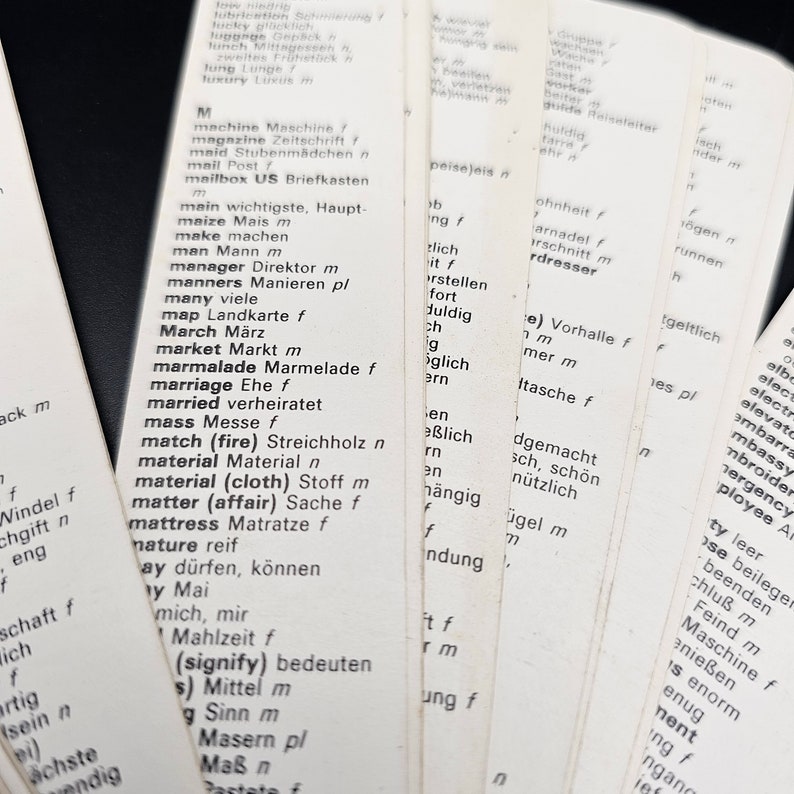 low niedrig
lubrication Schmierung f
lucky glücklich
luggage Gepäck n
lunch Mittagessen n,
zweites Frühstück n
lung Lunge f
luxury Luxus m
M
machine Maschine f
magazine Zeitschrift f
maid Stubenmädchen n
mail Post f
mailbox US Briefkasten
m
main wichtigste, Haupt-
maize Mais m
make machen
man Mann m
manager Direktor m
manners Manieren pl
many viele
map Landkarte f
March März
market Markt m
marmalade Marmelade f
marriage Ehe f
married verheiratet
mass Messe f
match (fire) Streichholz n
material Material n
material (cloth) Stoff m
matter (affair) Sache f
mattress Matratze f
nature reif
ay dürfen, können
y Mai
mich, mir
Mahlzeit f
(signify) bedeuten
s) Mittel m
g Sinn m
Masern pl
Maß n
Pastete f
ack m
f
Windel f
chgift n
, eng
f
schaft f
lich
f
rtig
lsein n
ei)
ächste
wendig
wieviel
umor m
hungrig sein
er m
beeilen
m, verletzen
he)mann m
peise)eis n
ob
ng f
zlich
eit f
orstellen
fort
duldig
ch
ig
öglich
ern
sen
eßlich
rn
en
hängig
f
f
ndung
ft f
r m
ung f
Gruppe f
wachsen
Wache f
raten
Gast m
worker
beiter m
guide Reiseleiter
huldig
tarre f
ehr n
ohnheit f
arnadel f
arschnitt m
rdresser
ce) Vorhalle f
n m
mer m
dtasche f
dgemacht
sch, schön
nützlich
ügel m
m,
n
ll m
aten
isch
nder m
n
f
mögen n
runnen
h
tgeltlich
f
nes pl
n
elbo
elect
electr
elevato
embarra
embassy
mbroider
mergency
ployee An
ty leer
ose beilegen
beenden
chluß m
Feind m
Maschine f
enießen
us enorm
enug
ment
ng f
ngang